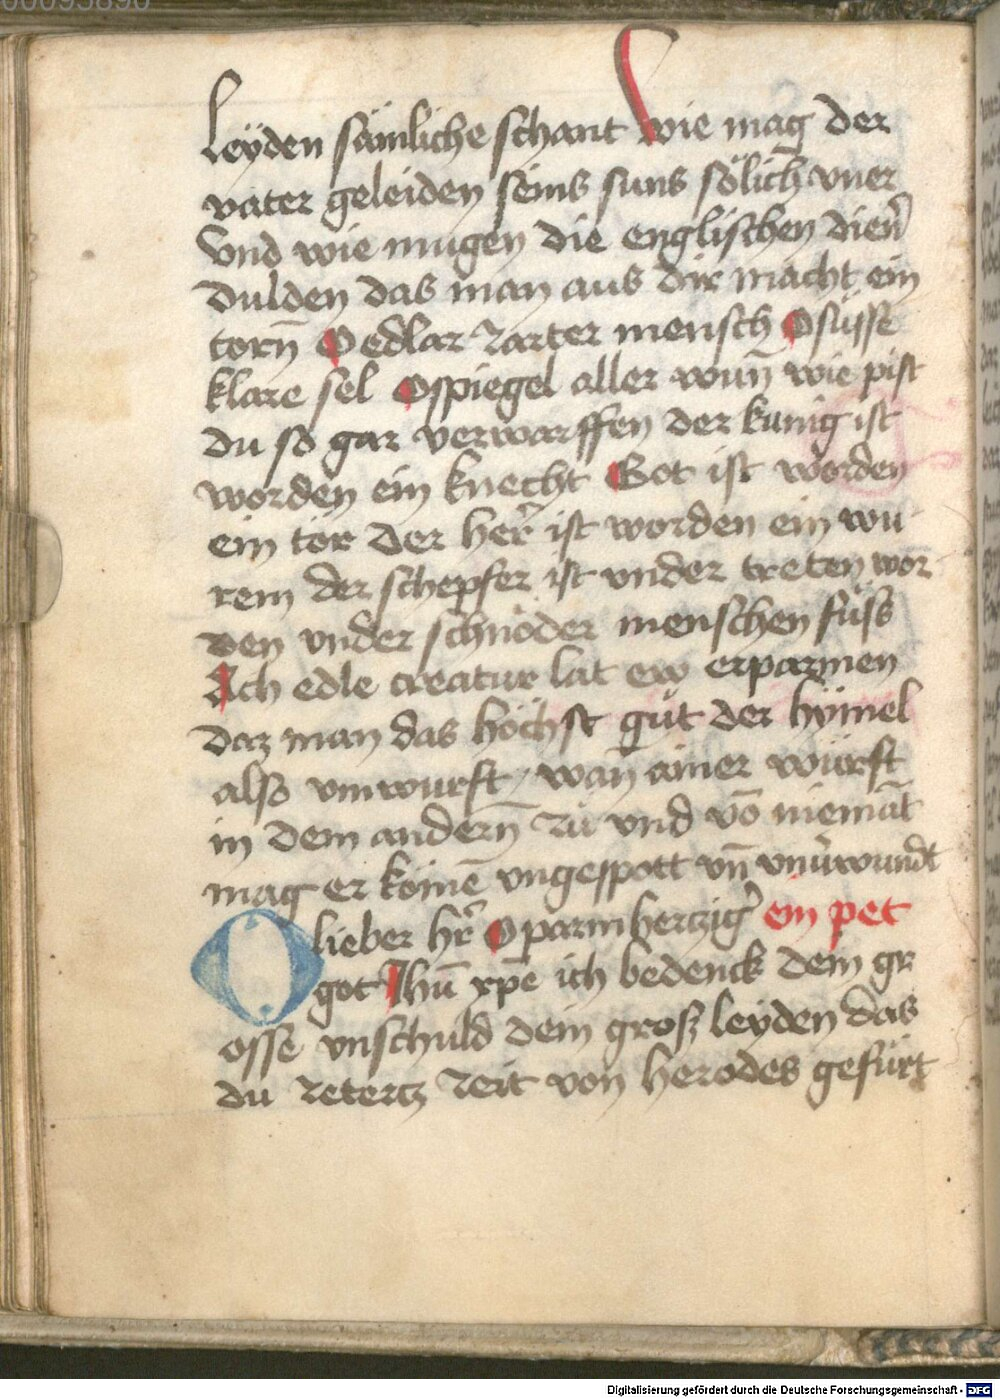 leyden sämliche schant wie mag der
vater geleiden seins suns sölich vner
Vnd wie mugen die englischen dien̄
dulden das man aus dir macht ein
torn̄ O edlar zarter mensch O süsse
klare sel O spiegel aller wun̄ wie pist
du so gar verworffen der kunig ist
worden ein knecht Got ist worden
ein tör der her̄ ist worden ein wu
rem der schepfer ist vnder treten wor
den vnder schnöder menschen füss
Ach edle creatur lat ew erparmen
daz man das höchst güt der hymel
also vmwurft / wan̄ ainer würft
in dem andern̄ zü vnd vō niemāt
mag er komē vngespott vn̄ vnuͦwundt
O lieber hr̄ O parmhertzigͦ ein pet
got Ihū xp̄e ich bedenck dein gr
osse vnschuld dein groß leyden das
du zetertz zeit von herodes gefürt
Digitalisierung gefördert durch die Deutsche Forschungsgemeinschaft - DFG